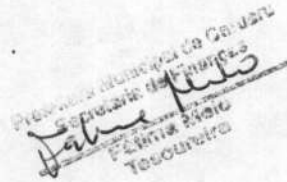 Prefeitura Municipal de Caruaru
Secretaria de Finanças
Fátima Melo
Tesoureira